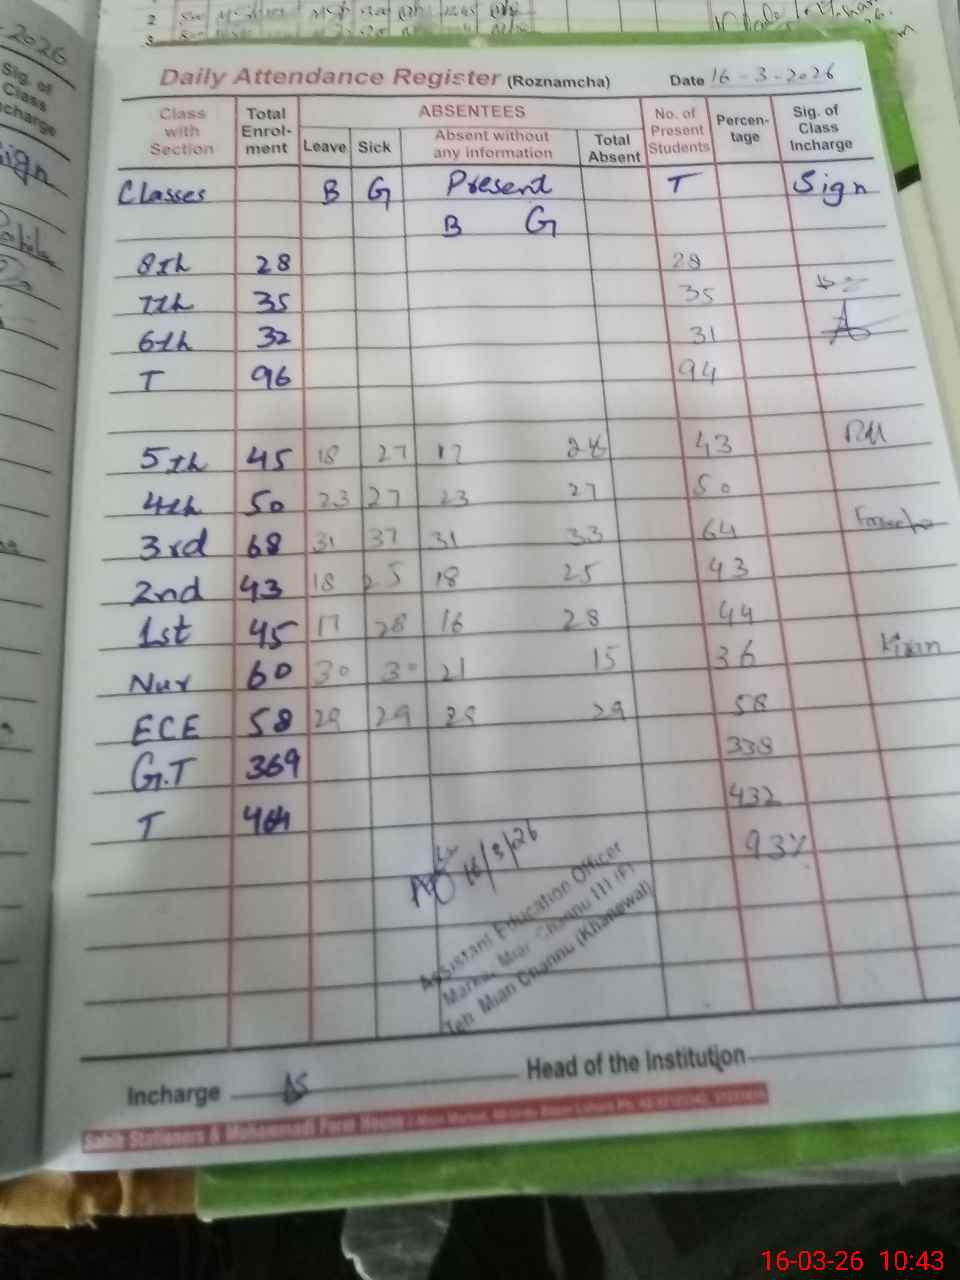 2026
Sig. of
Class
Incharge
Sign
2
3
Daily Attendance Register (Roznamcha) Date 16-3-2026
Class with Section Total Enrol-ment ABSENTEES No. of Present Students Percen-tage Sig. of Class Incharge
Leave Sick Absent without any information Total Absent
Classes B G Present T Sign
B G
8th 28 28
7th 35 35
6th 32 31
T 96 94
5th 45 18 27 17 43
4th 50 23 27 23 27 50
3rd 68 31 37 31 33 64
2nd 43 18 25 18 25 43
1st 45 17 28 16 28 44
Nur 60 30 30 21 15 36 Kiran
ECE 58 29 29 29 29 58
G.T 369 338
T 464 432
93%
16/3/26
Assistant Education Officer
Markaz Mian Channu III (F)
Teh Mian Channu (Khanewal)
Incharge Head of the Institution
Sahib Stationers & Muhammadi Form House
16-03-26 10:43